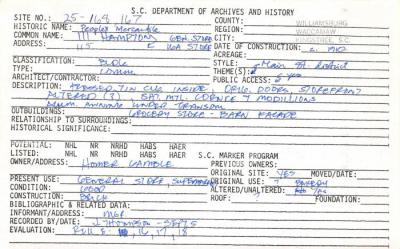 S.C. DEPARTMENT OF ARCHIVES AND HISTORY
SITE NO.: 25-168, 167
HISTORIC NAME: Peoples Mercantile
COMMON NAME: 111 HAMPTON GEN. STORE
ADDRESS: 115 E IGA STORE
COUNTY: WILLIAMSBURG
REGION: WACCAMAW
CITY: KINGSTREE, SC
DATE OF CONSTRUCTION: c. 1912
ACREAGE:
STYLE: Main St. district
THEME(S):
PUBLIC ACCESS: yes
CLASSIFICATION: BLDG
TYPE: COMM.
ARCHITECT/CONTRACTOR:
DESCRIPTION: PRESSED TIN CLG INSIDE, ORIG. DOORS, STOREFRONT
ALTERED (?) MTL CORNICE & MODILLIONS
ALUM. AWNING UNDER TRANSOM
OUTBUILDINGS: GROCERY STORE - FACADE
RELATIONSHIP TO SURROUNDINGS:
HISTORICAL SIGNIFICANCE:
POTENTIAL: NHL NR NRHD HABS HAER
LISTED: NHL NR NRHD HABS HAER S.C. MARKER PROGRAM
OWNER/ADDRESS: HOMER GAMBLE PREVIOUS OWNERS:
ORIGINAL SITE: YES MOVED/DATE:
PRESENT USE: GENERAL STORE, SUPERMARKET ORIGINAL USE: ? BAKERY
CONDITION: GOOD ALTERED/UNALTERED:
CONSTRUCTION: BRICK ROOF: ? FOUNDATION:
BIBLIOGRAPHIC & RELATED DATA:
INFORMANT/ADDRESS: MGR
RECORDED BY/DATE: J. THOMPSON
EVALUATION: 16, 17, 18